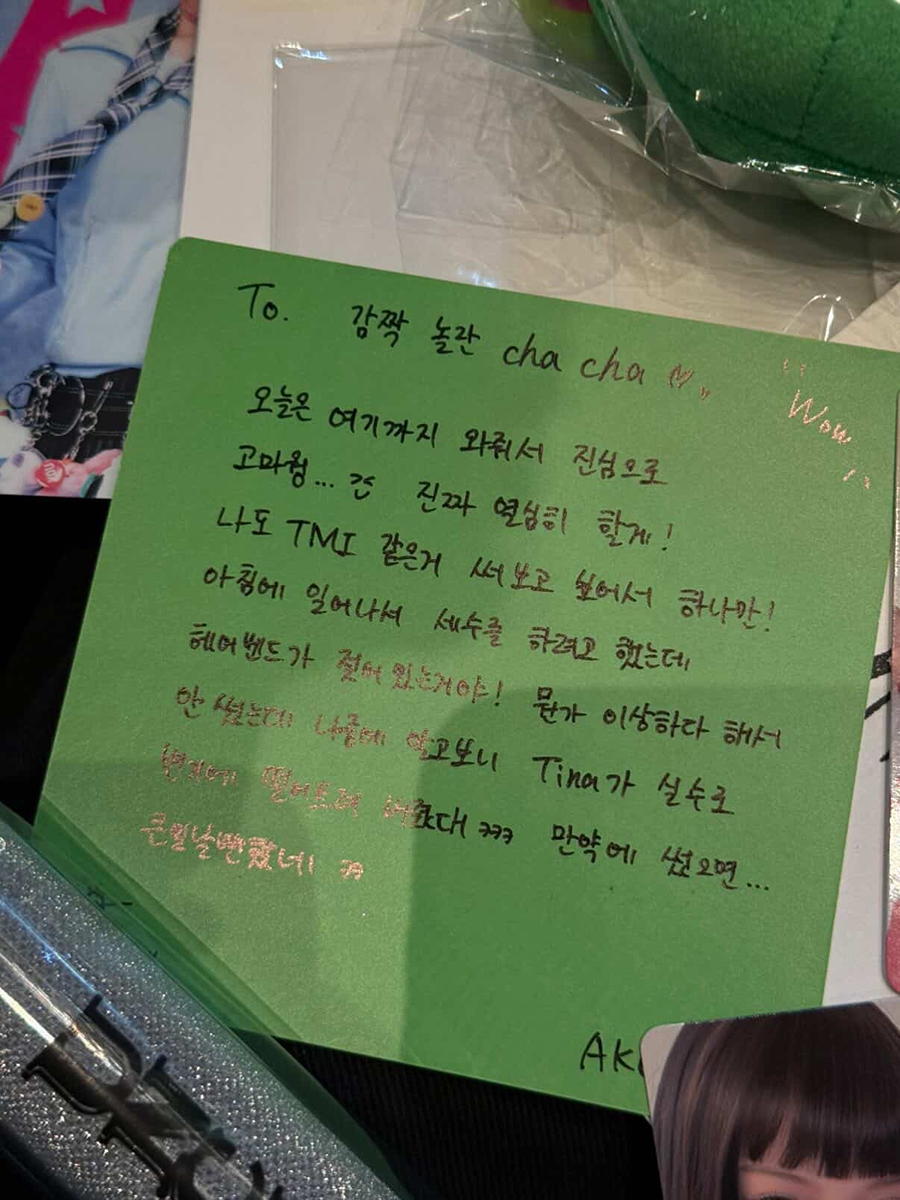 To. 감짝 놀란 cha cha
Wow
오늘은 여기까지 와줘서 진심으로
고마웡... 진짜 열심히 할게!
나도 TMI 같은거 써보고 싶어서 하나만!
아침에 일어나서 세수를 하려고 했는데
헤어밴드가 젖어 있는거야! 뭔가 이상하다 해서
안 썼는데 나중에 알고보니 Tina가 실수로
변기에 떨어뜨려 버렸대 ㅋㅋㅋ 만약에 썼으면...
큰일날뻔했네 ㅋㅋ